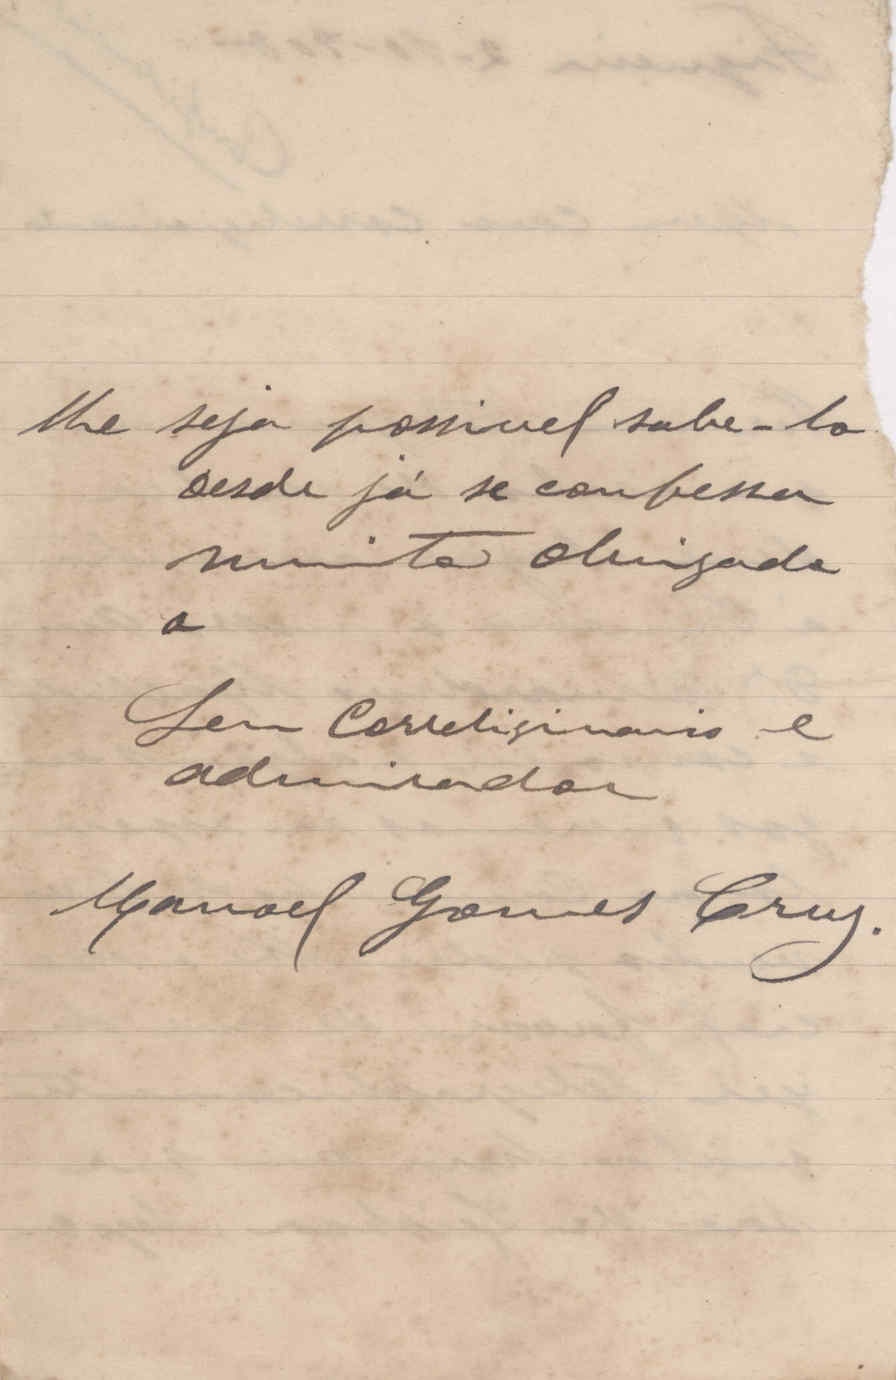 lhe seja possivel sabe-lo
desde já se confessa
muito obrigado
o
Seu Correligionario e
admirador
Manoel Gomes Cruz.